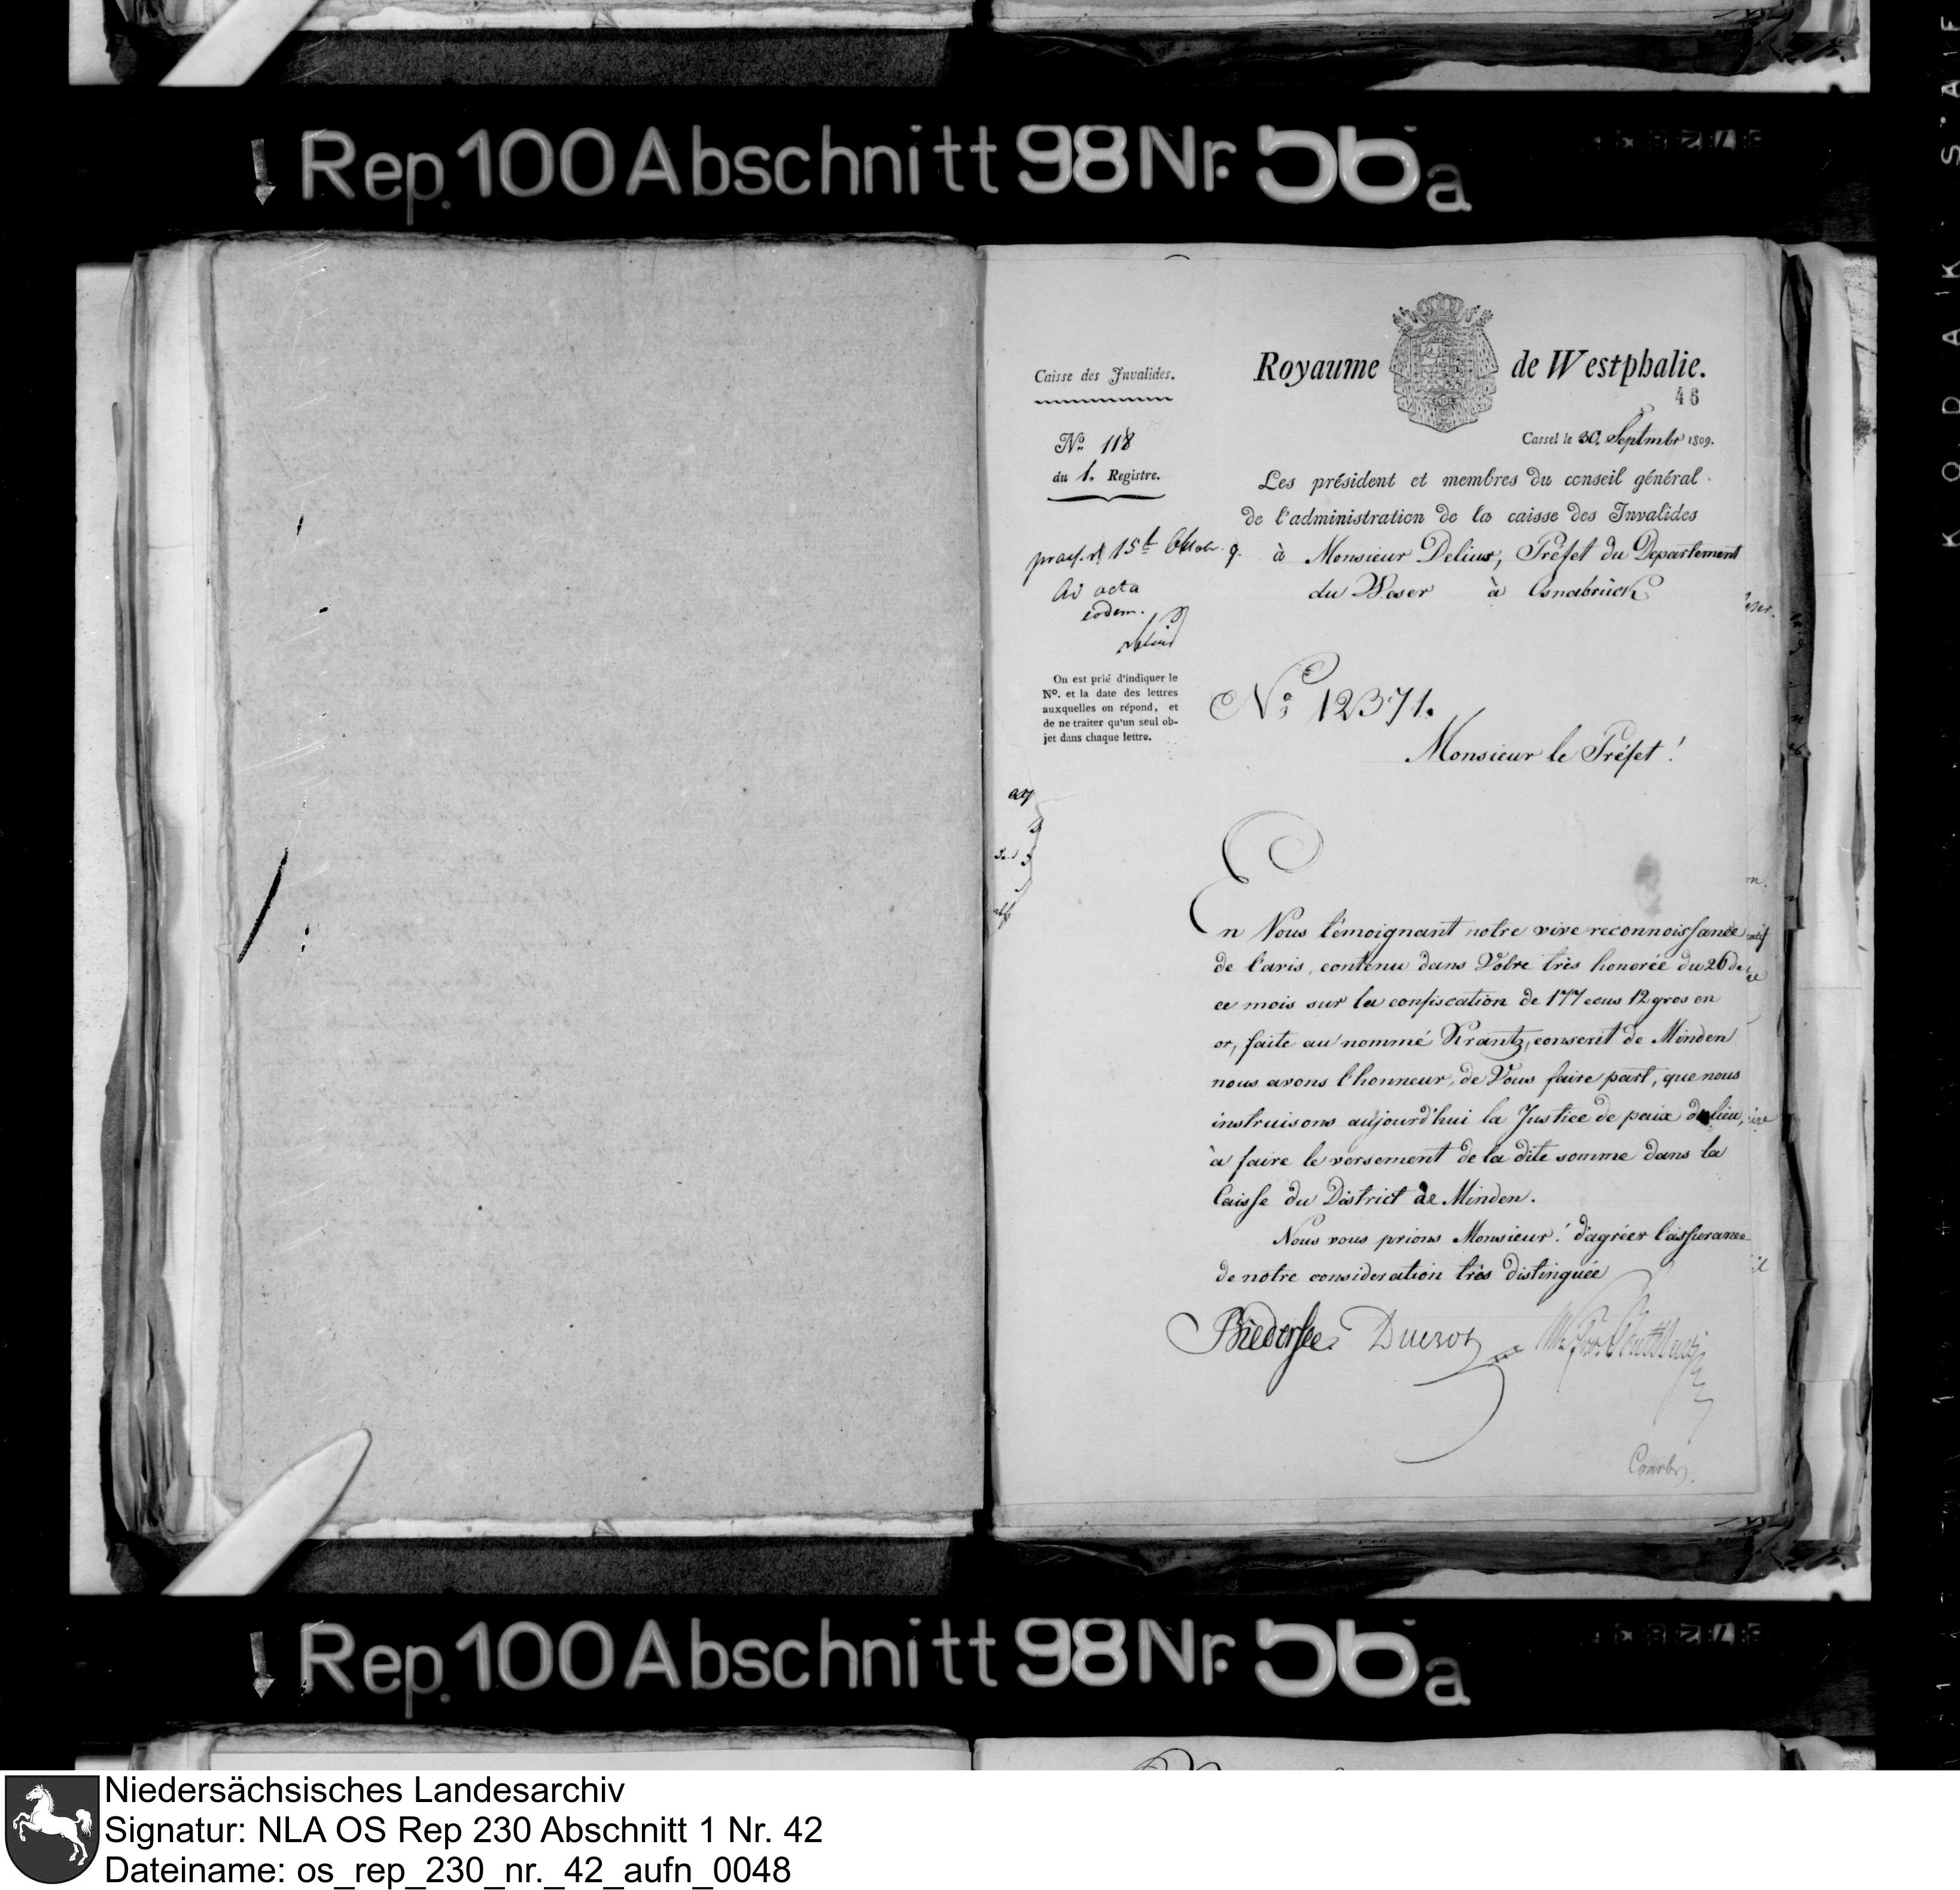 Rep. 100 Abschnitt 98 Nr. 56a
Caisse des Invalides.
Royaume de Westphalie.
46
Cassel le 30. Septmbr 1809.
No. 118
du 1. Registre.
Les président et membres du conseil général
de l'administration de la caisse des Invalides
à Monsieur Delius, Préfet du Departement
du Weser à Osnabrück
praes. d 15t Octobr. 9.
Ad acta
eodem.
Delius
On est prié d'indiquer le
No. et la date des lettres
auxquelles on répond, et
de ne traiter qu'un seul ob-
jet dans chaque lettre.
No 12371.
Monsieur le Préfet!
En Vous témoignant notre vive reconnoissance
de l'avis, contenu dans Votre très honorée du 26 de
ce mois sur la confiscation de 177 ecus 12 gros en
or, faite au nommé Krantz, conscrit de Minden
nous avons l'honneur, de Vous faire part, que nous
instruisons aujourd'hui la Justice de paix du lieu,
à faire le versement de la dite somme dans la
Caisse du District de Minden.
Nous vous prions Monsieur! d'agréer l'assurance
de notre consideration très distinguée
Biedersee. Ducrot
Rep. 100 Abschnitt 98 Nr. 56a
KODAK SAFE
Niedersächsisches Landesarchiv
Signatur: NLA OS Rep 230 Abschnitt 1 Nr. 42
Dateiname: os_rep_230_nr._42_aufn_0048